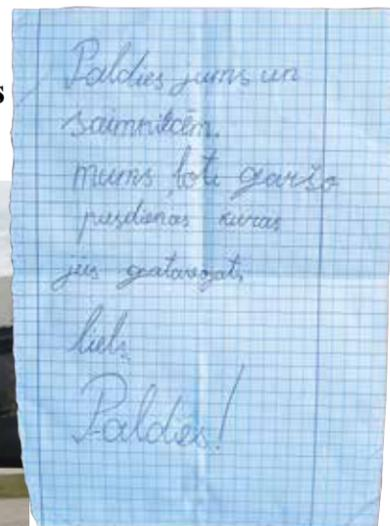 s
Paldies jums un
saimniecēm.
mums ļoti garšo
pusdienas kuras
jūs gatavojat,
liels
Paldies!